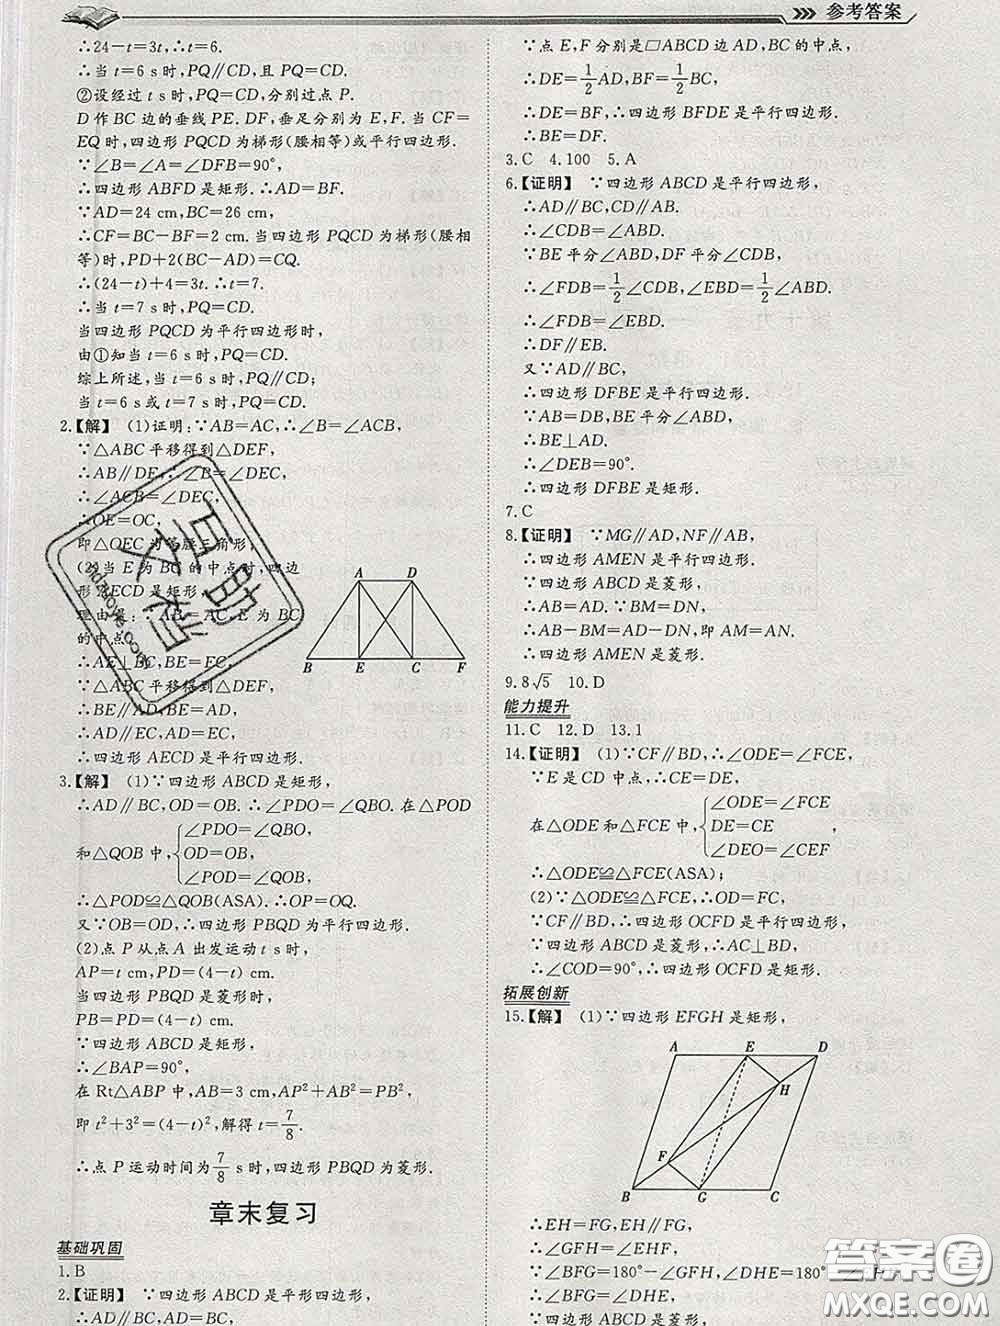 参考答案
∴24－t＝3t,∴t＝6.
∴当 t＝6 s时,PQ∥CD,且 PQ＝CD.
②设经过 t s时,PQ＝CD,分别过点 P.
D 作 BC 边的垂线 PE.DF,垂足分别为 E,F.当 CF＝
EQ 时,四边形 PQCD 为梯形(腰相等)或平行四边形.
∵∠B＝∠A＝∠DFB＝90°,
∴四边形 ABFD 是矩形.∴AD＝BF.
∵AD＝24 cm,BC＝26 cm,
∴CF＝BC－BF＝2 cm.当四边形 PQCD 为梯形(腰相
等)时,PD＋2(BC－AD)＝CQ.
∴(24－t)＋4＝3t.∴t＝7.
∴当 t＝7 s时,PQ＝CD.
当四边形 PQCD 为平行四边形时,
由①知当 t＝6 s时,PQ＝CD.
综上所述,当 t＝6 s时,PQ∥CD;
当 t＝6 s或 t＝7 s时,PQ＝CD.
2.【解】 (1)证明:∵AB＝AC,∴∠B＝∠ACB,
∵△ABC 平移得到△DEF,
∴AB∥DE,∴∠B＝∠DEC,
∴∠ACB＝∠DEC,
∴OE＝OC,
即△OEC 为等腰三角形;
(2)当 E 为 BC 的中点时,四边
形 AECD 是矩形,
理由是:∵AB＝AC,E 为 BC
的中点,
∴AE⊥BC,BE＝EC,
∵△ABC 平移得到△DEF,
∴BE∥AD,BE＝AD,
∴AD∥EC,AD＝EC,
∴四边形 AECD 是平行四边形.
A D
B E C F
3.【解】 (1)∵四边形 ABCD 是矩形,
∴AD∥BC,OD＝OB.∴∠PDO＝∠QBO.在△POD
和△QOB 中,{∠PDO＝∠QBO,
OD＝OB,
∠POD＝∠QOB,
∴△POD≌△QOB(ASA).∴OP＝OQ.
又∵OB＝OD,∴四边形 PBQD 为平行四边形.
(2)点 P 从点 A 出发运动 t s时,
AP＝t cm,PD＝(4－t) cm.
当四边形 PBQD 是菱形时,
PB＝PD＝(4－t) cm.
∵四边形 ABCD 是矩形,
∴∠BAP＝90°,
在 Rt△ABP 中,AB＝3 cm,AP²＋AB²＝PB²,
即 t²＋3²＝(4－t)²,解得 t＝7/8.
∴点 P 运动时间为 7/8 s时,四边形 PBQD 为菱形.
章末复习
基础巩固
1.B
2.【证明】 ∵四边形 ABCD 是平形四边形,
∴AD∥BC,AD＝BC,
∵点 E,F 分别是□ABCD 边 AD,BC 的中点,
∴DE＝1/2 AD,BF＝1/2 BC,
∴DE＝BF,∴四边形 BFDE 是平行四边形.
∴BE＝DF.
3.C 4.100 5.A
6.【证明】 ∵四边形 ABCD 是平行四边形,
∴AD∥BC,CD∥AB.
∴∠CDB＝∠ABD.
∵BE 平分∠ABD,DF 平分∠CDB,
∴∠FDB＝1/2∠CDB,∠EBD＝1/2∠ABD.
∴∠FDB＝∠EBD.
∴DF∥EB.
又∵AD∥BC,
∴四边形 DFBE 是平行四边形.
∵AB＝DB,BE 平分∠ABD,
∴BE⊥AD.
∴∠DEB＝90°.
∴四边形 DFBE 是矩形.
7.C
8.【证明】 ∵MG∥AD,NF∥AB,
∴四边形 AMEN 是平行四边形.
∵四边形 ABCD 是菱形,
∴AB＝AD.∵BM＝DN,
∴AB－BM＝AD－DN,即 AM＝AN.
∴四边形 AMEN 是菱形.
9.8√5 10.D
能力提升
11.C 12.D 13.1
14.【证明】 (1)∵CF∥BD,∴∠ODE＝∠FCE,
∵E 是 CD 中点,∴CE＝DE,
在△ODE 和△FCE 中,{∠ODE＝∠FCE
DE＝CE
∠DEO＝∠CEF,
∴△ODE≌△FCE(ASA);
(2)∵△ODE≌△FCE,∴OD＝FC,
∵CF∥BD,∴四边形 OCFD 是平行四边形,
∵四边形 ABCD 是菱形,∴AC⊥BD,
∴∠COD＝90°,∴四边形 OCFD 是矩形.
拓展创新
15.【解】 (1)∵四边形 EFGH 是矩形,
A E D
H
F
B G C
∴EH＝FG,EH∥FG,
∴∠GFH＝∠EHF,
∵∠BFG＝180°－∠GFH,∠DHE＝180°－
∴∠BFG＝∠DHE,
∵四边形 ABCD 是菱形,
答案卷
MXQE.COM